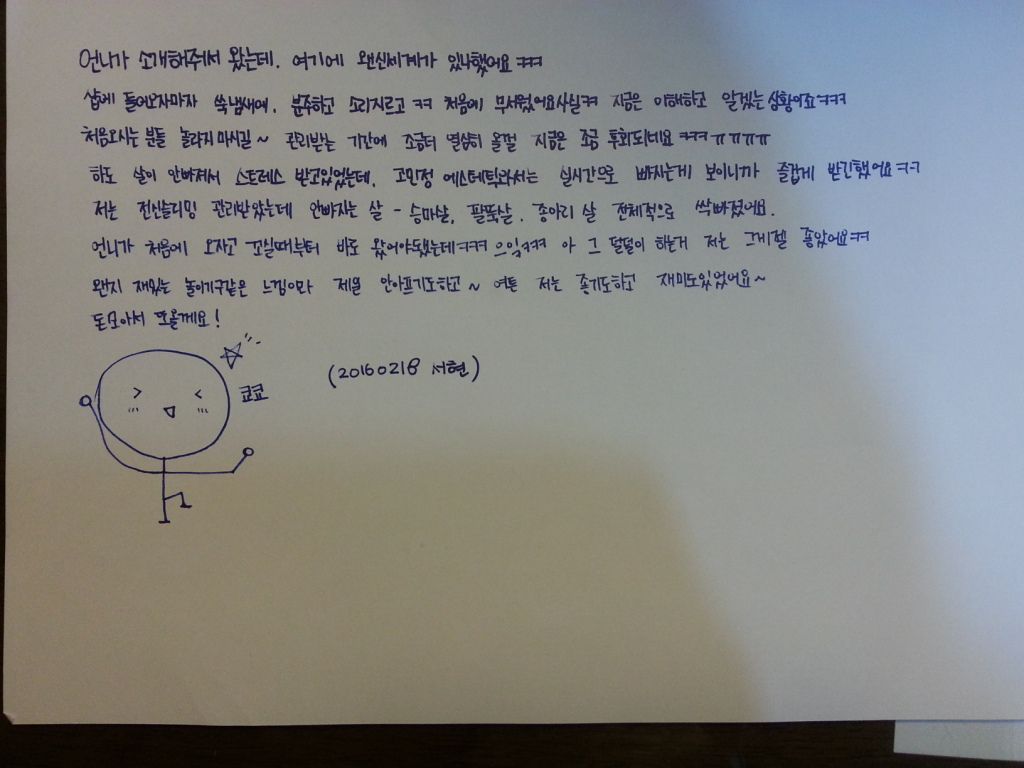 언니가 소개해줘서 왔는데. 여기에 왠신세계가 있나했어요 ㅋㅋ
샵에 들어오자마자 쑥냄새에. 분주하고 소리지르고 ㅋㅋ 처음에 무서웠어요사실ㅋㅋ 지금은 이해하고 알겠는 상황이죠ㅋㅋㅋ
처음오시는 분들 놀라지마시길~ 관리받는 기간에 조금더 열심히 올걸 지금은 조금 후회되네요 ㅋㅋㅋㅠㅠㅠㅠ
하도 살이 안빠져서 스트레스 받고있었는데. 고민정 에스테틱와서는 실시간으로 빠지는게 보이니까 즐겁게 받긴했어요ㅋㅋ
저는 전신슬리밍 관리받았는데 안빠지는 살 - 승마살, 팔뚝살. 종아리 살 전체적으로 싹빠졌어요.
언니가 처음에 오자고 꼬실때부터 바로 왔어야됐는데ㅋㅋㅋ 으잌ㅋㅋㅋ 아 그 덜덜이 하는거 저는 그게젤 좋았어요ㅋㅋ
왠지 재밌는 놀이기구같은 느낌이라 제일 안아프기도하고~ 여튼 저는 좋기도하고 재미도있었어요~
돈모아서 또올께요!
쿄쿄
(20160218 서현)